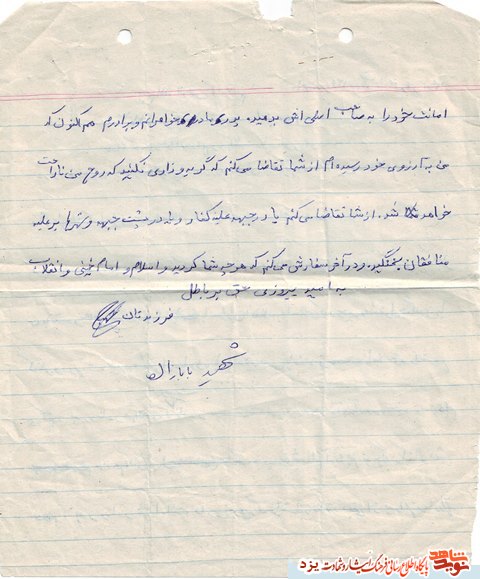 امانت خود را به صاحب اصلی اش بدهید. پدر، مادر، خواهرانم و برادرم هم اکنون که
من به آرزوی خود رسیده ام از شما تقاضا می کنم که گریه و زاری نکنید که روح من ناراحت
خواهد شد. از شما تقاضا می کنم یا در جبهه علیه کفار و یا در پشت جبهه و شهرها بر علیه
منافقان بجنگید. و در آخر سفارش می کنم که هر چه شما کردید و اسلام و امام خمینی و انقلاب
به امید پیروزی حق بر باطل
فرزندتان
شهید بابازاده
نوید شاهد
پایگاه اطلاع رسانی فرهنگ ایثار و شهادت یزد